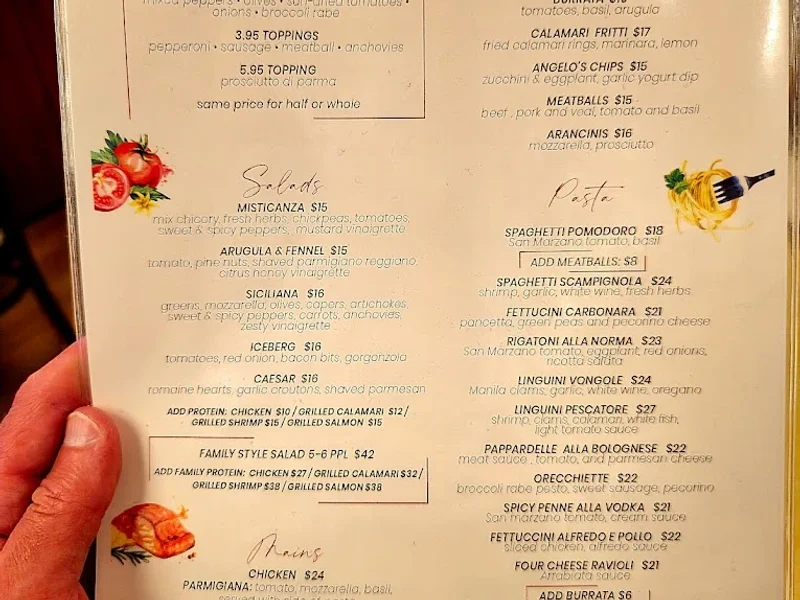 mixed peppers • olives • sun-dried tomatoes •
onions • broccoli rabe
3.95 TOPPINGS
pepperoni • sausage • meatball • anchovies
5.95 TOPPING
prosciutto di parma
same price for half or whole
Salads
MISTICANZA $15
mix chicory, fresh herbs, chickpeas, tomatoes,
sweet & spicy peppers, mustard vinaigrette
ARUGULA & FENNEL $15
tomato, pine nuts, shaved parmigiano reggiano,
citrus honey vinaigrette
SICILIANA $16
greens, mozzarella, olives, capers, artichokes,
sweet & spicy peppers, carrots, anchovies,
zesty vinaigrette
ICEBERG $16
tomatoes, red onion, bacon bits, gorgonzola
CAESAR $16
romaine hearts, garlic croutons, shaved parmesan
ADD PROTEIN: CHICKEN $10 / GRILLED CALAMARI $12 /
GRILLED SHRIMP $15 / GRILLED SALMON $15
FAMILY STYLE SALAD 5-6 PPL $42
ADD FAMILY PROTEIN: CHICKEN $27 / GRILLED CALAMARI $32 /
GRILLED SHRIMP $38 / GRILLED SALMON $38
Mains
CHICKEN $24
PARMIGIANA: tomato, mozzarella, basil,
served with side of pasta
BURRATA
tomatoes, basil, arugula
CALAMARI FRITTI $17
fried calamari rings, marinara, lemon
ANGELO'S CHIPS $15
zucchini & eggplant, garlic yogurt dip
MEATBALLS $15
beef , pork and veal, tomato and basil
ARANCINIS $16
mozzarella, prosciutto
Pasta
SPAGHETTI POMODORO $18
San Marzano tomato, basil
ADD MEATBALLS: $8
SPAGHETTI SCAMPIGNOLA $24
shrimp, garlic, white wine, fresh herbs
FETTUCINI CARBONARA $21
pancetta, green peas and pecorino cheese
RIGATONI ALLA NORMA $23
San Marzano tomato, eggplant, red onions,
ricotta salata
LINGUINI VONGOLE $24
Manila clams, garlic, white wine, oregano
LINGUINI PESCATORE $27
shrimp, clams, calamari, white fish,
light tomato sauce
PAPPARDELLE ALLA BOLOGNESE $22
meat sauce , tomato, and parmesan cheese
ORECCHIETTE $22
broccoli rabe pesto, sweet sausage, pecorino
SPICY PENNE ALLA VODKA $21
San marzano tomato, cream sauce
FETTUCCINI ALFREDO E POLLO $22
sliced chicken, alfredo sauce
FOUR CHEESE RAVIOLI $21
Arrabiata sauce
ADD BURRATA $6